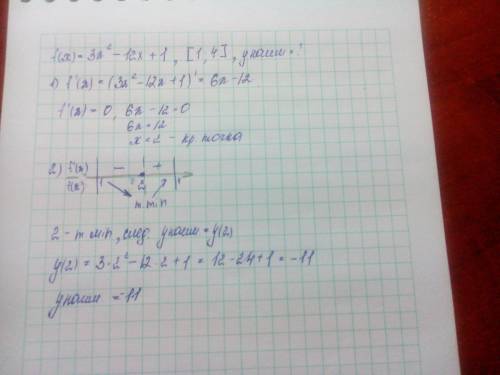 f(x) = 3x² - 12x + 1, [1, 4], y наим = ?
1) f'(x) = (3x² - 12x + 1)' = 6x - 12
f'(x) = 0, 6x - 12 = 0
6x = 12
x = 2 - кр. точка
2) f'(x) - +
f(x) 1 2
т. min
2 - т min, след. y наим = y(2)
y(2) = 3·2² - 12·2 + 1 = 12 - 24 + 1 = -11
y наим = -11